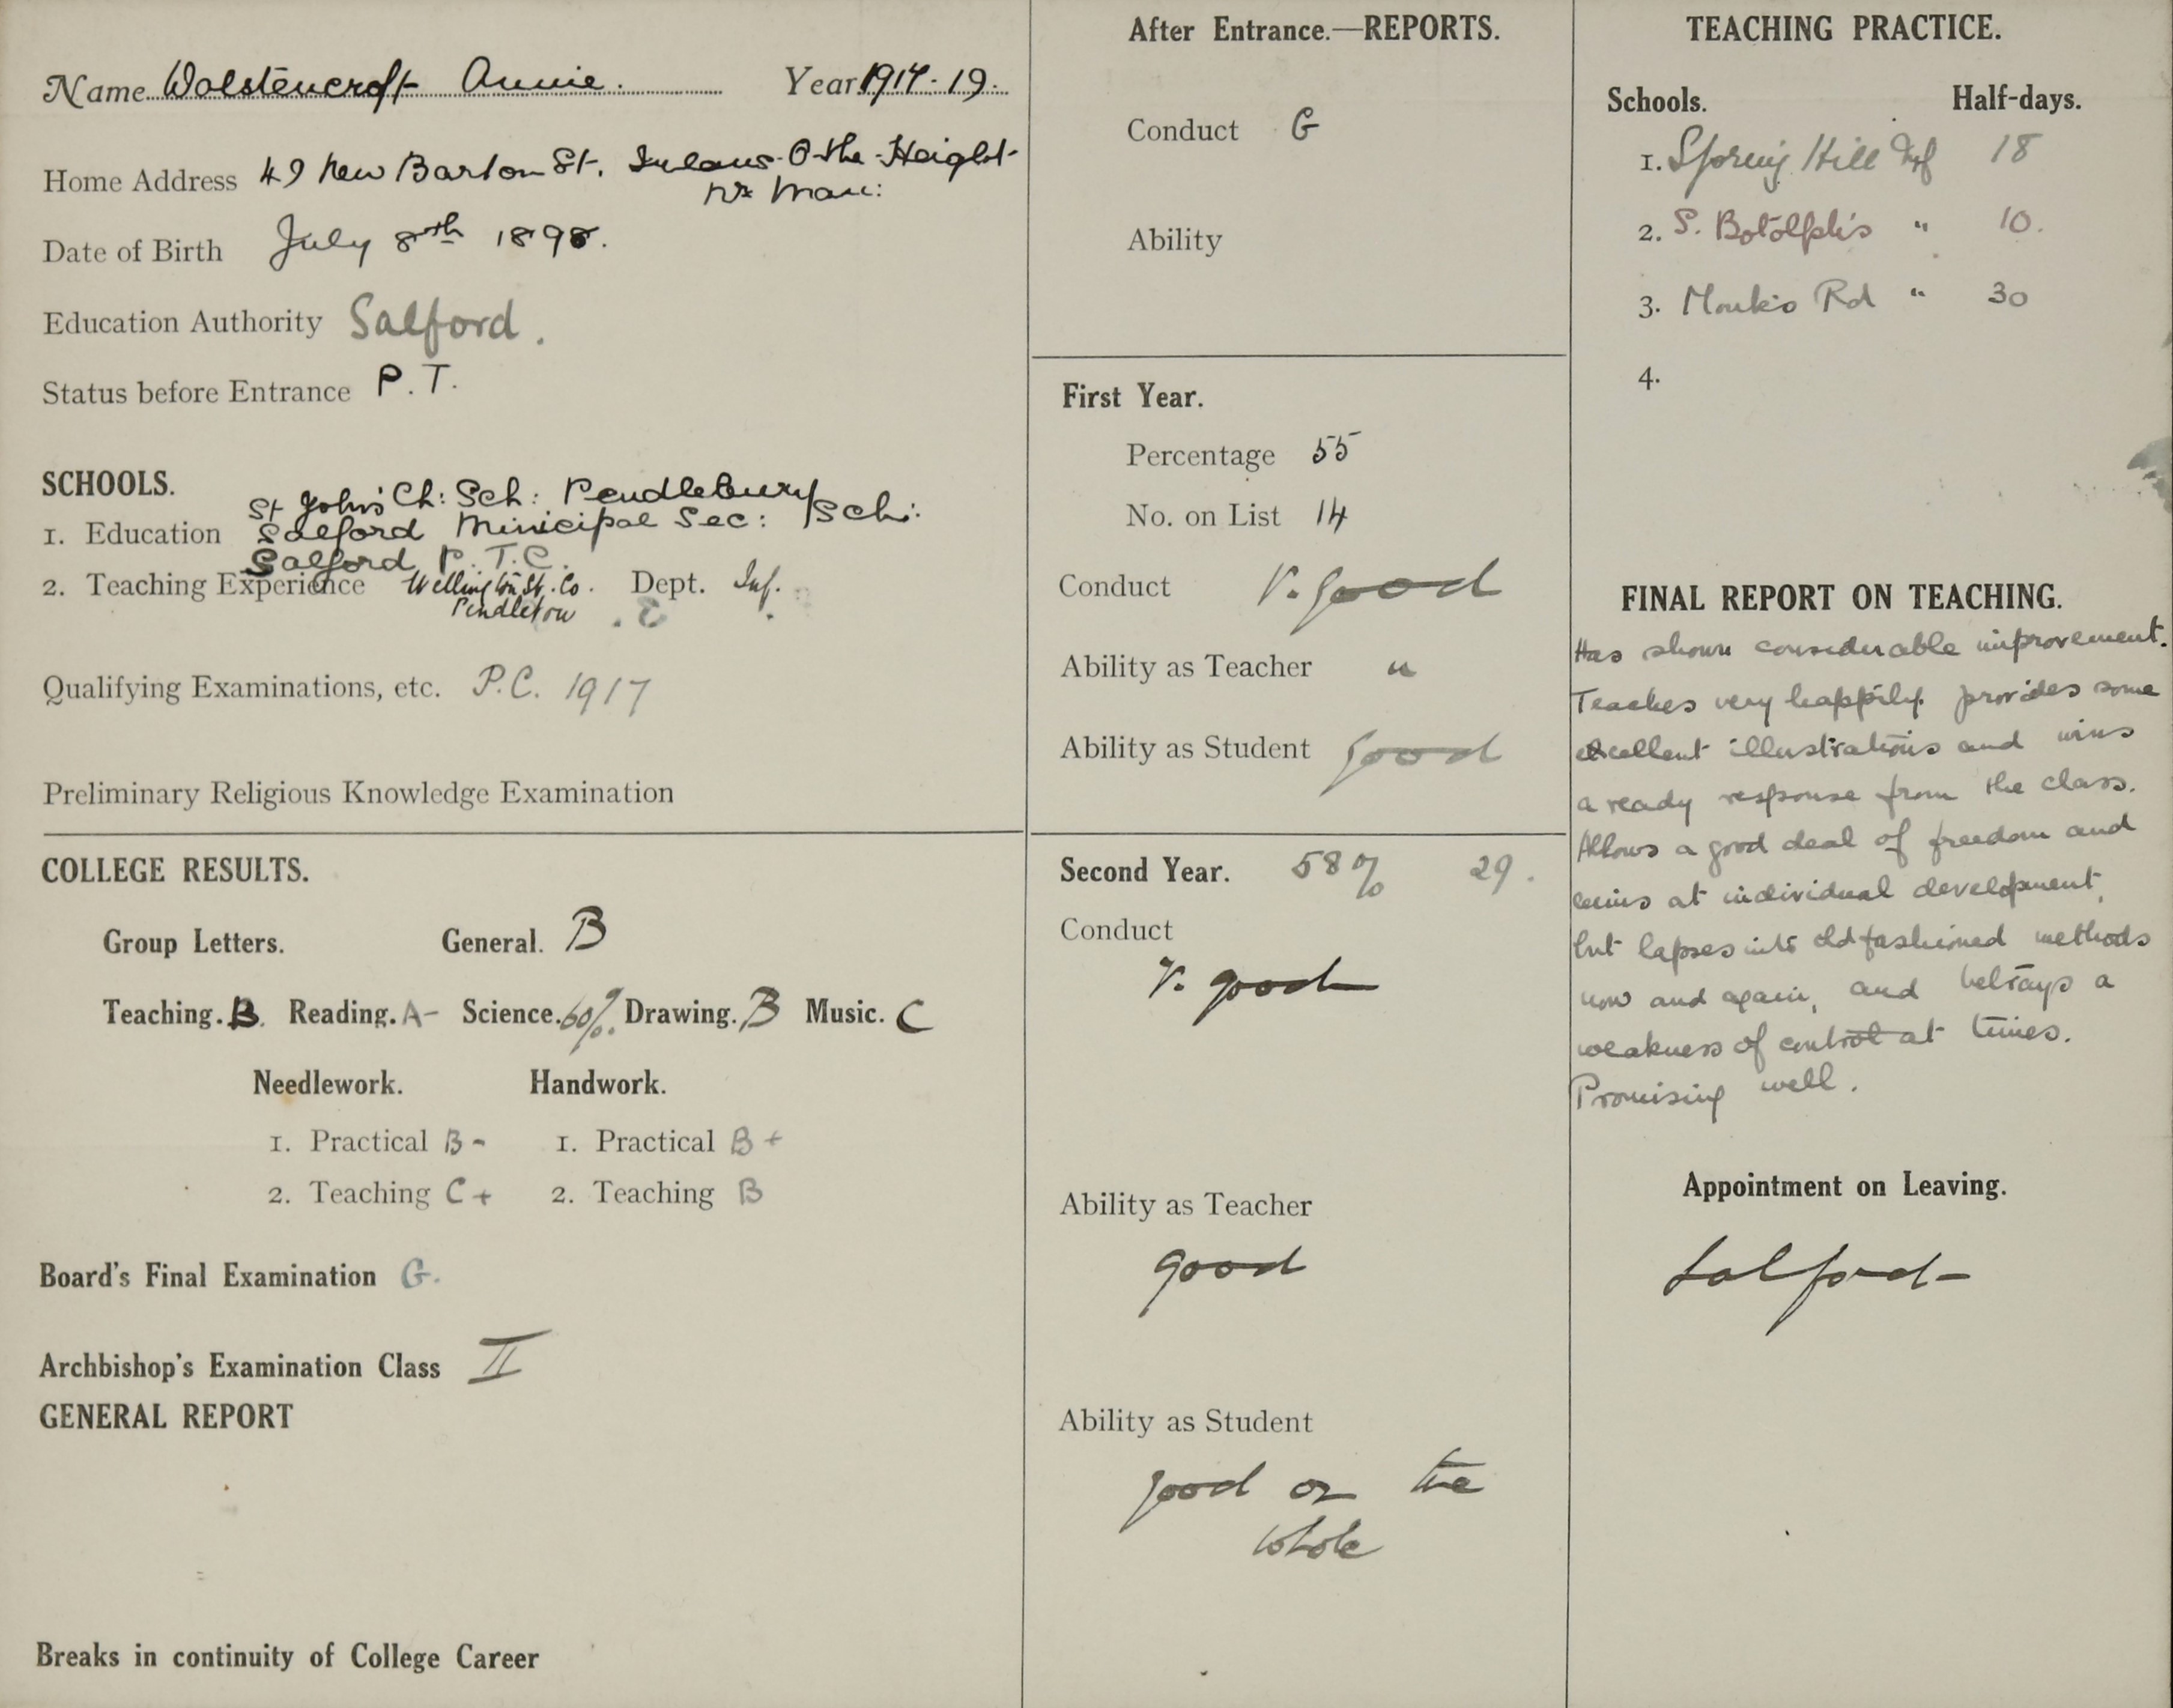 Name Wolstencroft Annie. Year 1917-19.
Home Address 49 New Barton St. Irlams-O-the-Height
Nr Man:
Date of Birth July 8th 1898.
Education Authority Salford.
Status before Entrance P.T.
SCHOOLS.
St John's Ch: Sch: Pendlebury
1. Education Salford Municipal Sec: Sch:
Salford P.T.C.
2. Teaching Experience Wellington St. Co. Dept. Inf.
Pendleton
Qualifying Examinations, etc. P.C. 1917
Preliminary Religious Knowledge Examination
COLLEGE RESULTS.
Group Letters. General. B
Teaching. B. Reading. A- Science. 60%. Drawing. B Music. C
Needlework. Handwork.
1. Practical B- 1. Practical B+
2. Teaching C+ 2. Teaching B
Board's Final Examination G.
Archbishop's Examination Class II
GENERAL REPORT
Breaks in continuity of College Career
After Entrance.—REPORTS.
Conduct G
Ability
First Year.
Percentage 55
No. on List 14
Conduct V. good
Ability as Teacher "
Ability as Student good
Second Year. 58% 29.
Conduct
V. good
Ability as Teacher
good
Ability as Student
good on the
whole
TEACHING PRACTICE.
Schools. Half-days.
1. Spring Hill Inf 18
2. S. Botolph's " 10.
3. Monks Rd " 30
4.
FINAL REPORT ON TEACHING.
Has shown considerable improvement.
Teaches very happily provides some
excellent illustrations and wins
a ready response from the class.
Allows a good deal of freedom and
aims at individual development,
but lapses into old fashioned methods
now and again, and betrays a
weakness of control at times.
Promising well.
Appointment on Leaving.
Salford